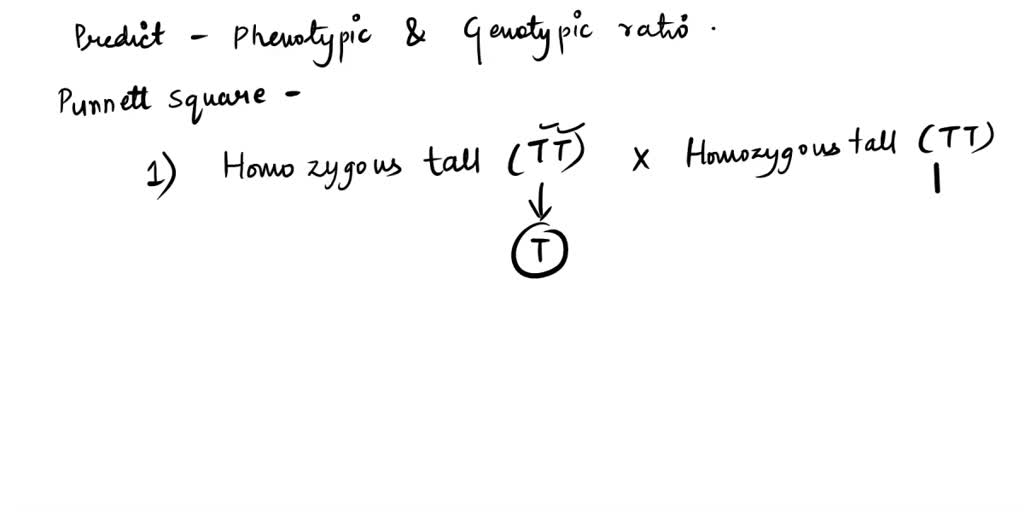 Predict - Phenotypic & Genotypic ratio.
Punnett square -
1) Homozygous tall (TT) x Homozygous tall (TT)
T